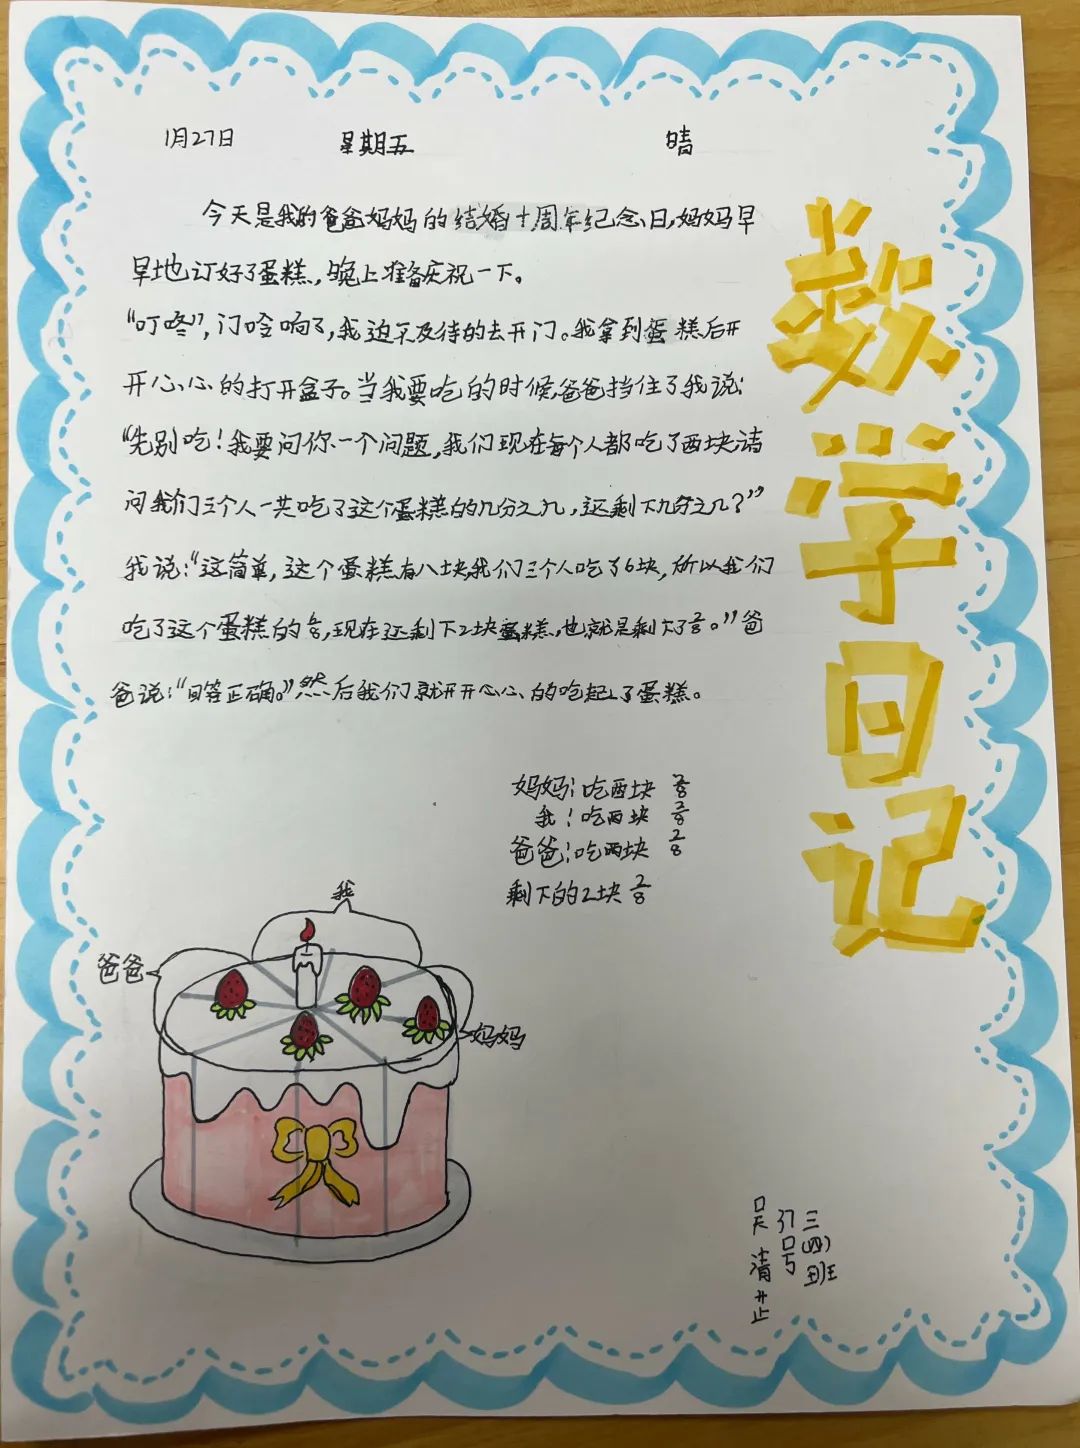 数学日记
1月27日 星期五 晴
今天是我的爸爸妈妈的结婚十周年纪念日,妈妈早
早地订好了蛋糕,晚上准备庆祝一下。
“叮咚”,门铃响了,我迫不及待的去开门。我拿到蛋糕后开
开心心的打开盒子。当我要吃的时候,爸爸挡住了我说:
“先别吃!我要问你一个问题,我们现在每个人都吃了两块请
问我们三个人一共吃了这个蛋糕的几分之几,还剩下几分之几?”
我说:“这简单,这个蛋糕有八块,我们三个人吃了6块,所以我们
吃了这个蛋糕的6/8,现在还剩下2块蛋糕,也就是剩下了2/8。”爸
爸说:“回答正确。”然后我们就开开心心的吃起了蛋糕。
妈妈:吃两块 2/8
我:吃两块 2/8
爸爸:吃两块 2/8
剩下的2块 2/8
我
爸爸
妈妈
三(四)班
37号
吴清芷